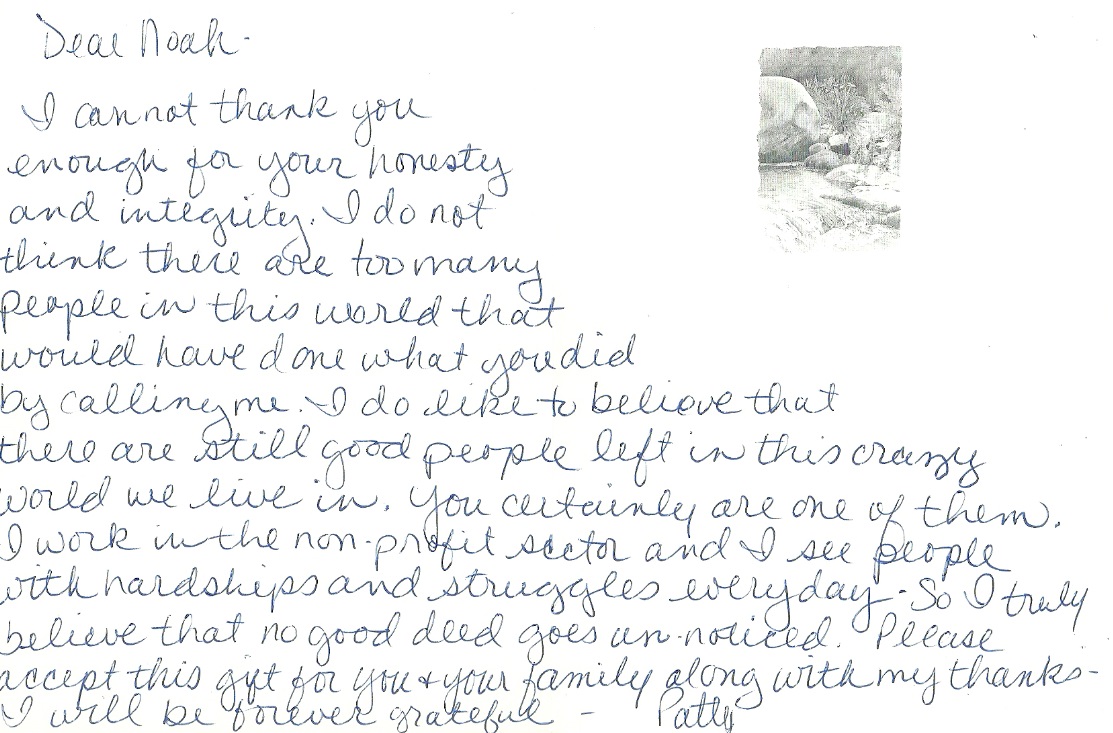 Dear Noah-
I cannot thank you
enough for your honesty
and integrity. I do not
think there are too many
people in this world that
would have done what you did
by calling me. I do like to believe that
there are still good people left in this crazy
world we live in. You certainly are one of them.
I work in the non-profit sector and I see people
with hardships and struggles everyday. So I truly
believe that no good deed goes un-noticed. Please
accept this gift for you & your family along with my thanks-
I will be forever grateful - Patty